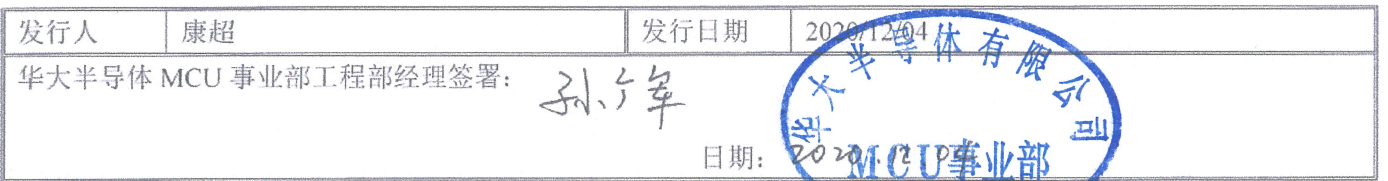 发行人 康超 发行日期 2020/12/04
华大半导体 MCU 事业部工程部经理签署: 孙广军
日期: 2020.12.04
华大半导体有限公司
MCU事业部